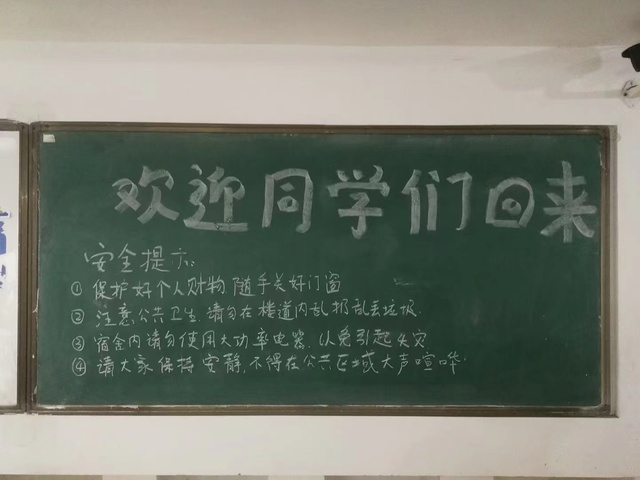 欢迎同学们回来
安全提示:
① 保护好个人财物 随手关好门窗
② 注意公共卫生 请勿在楼道内乱扔乱丢垃圾.
③ 宿舍内请勿使用大功率电器, 以免引起火灾
④ 请大家保持安静, 不得在公共区域大声喧哗.